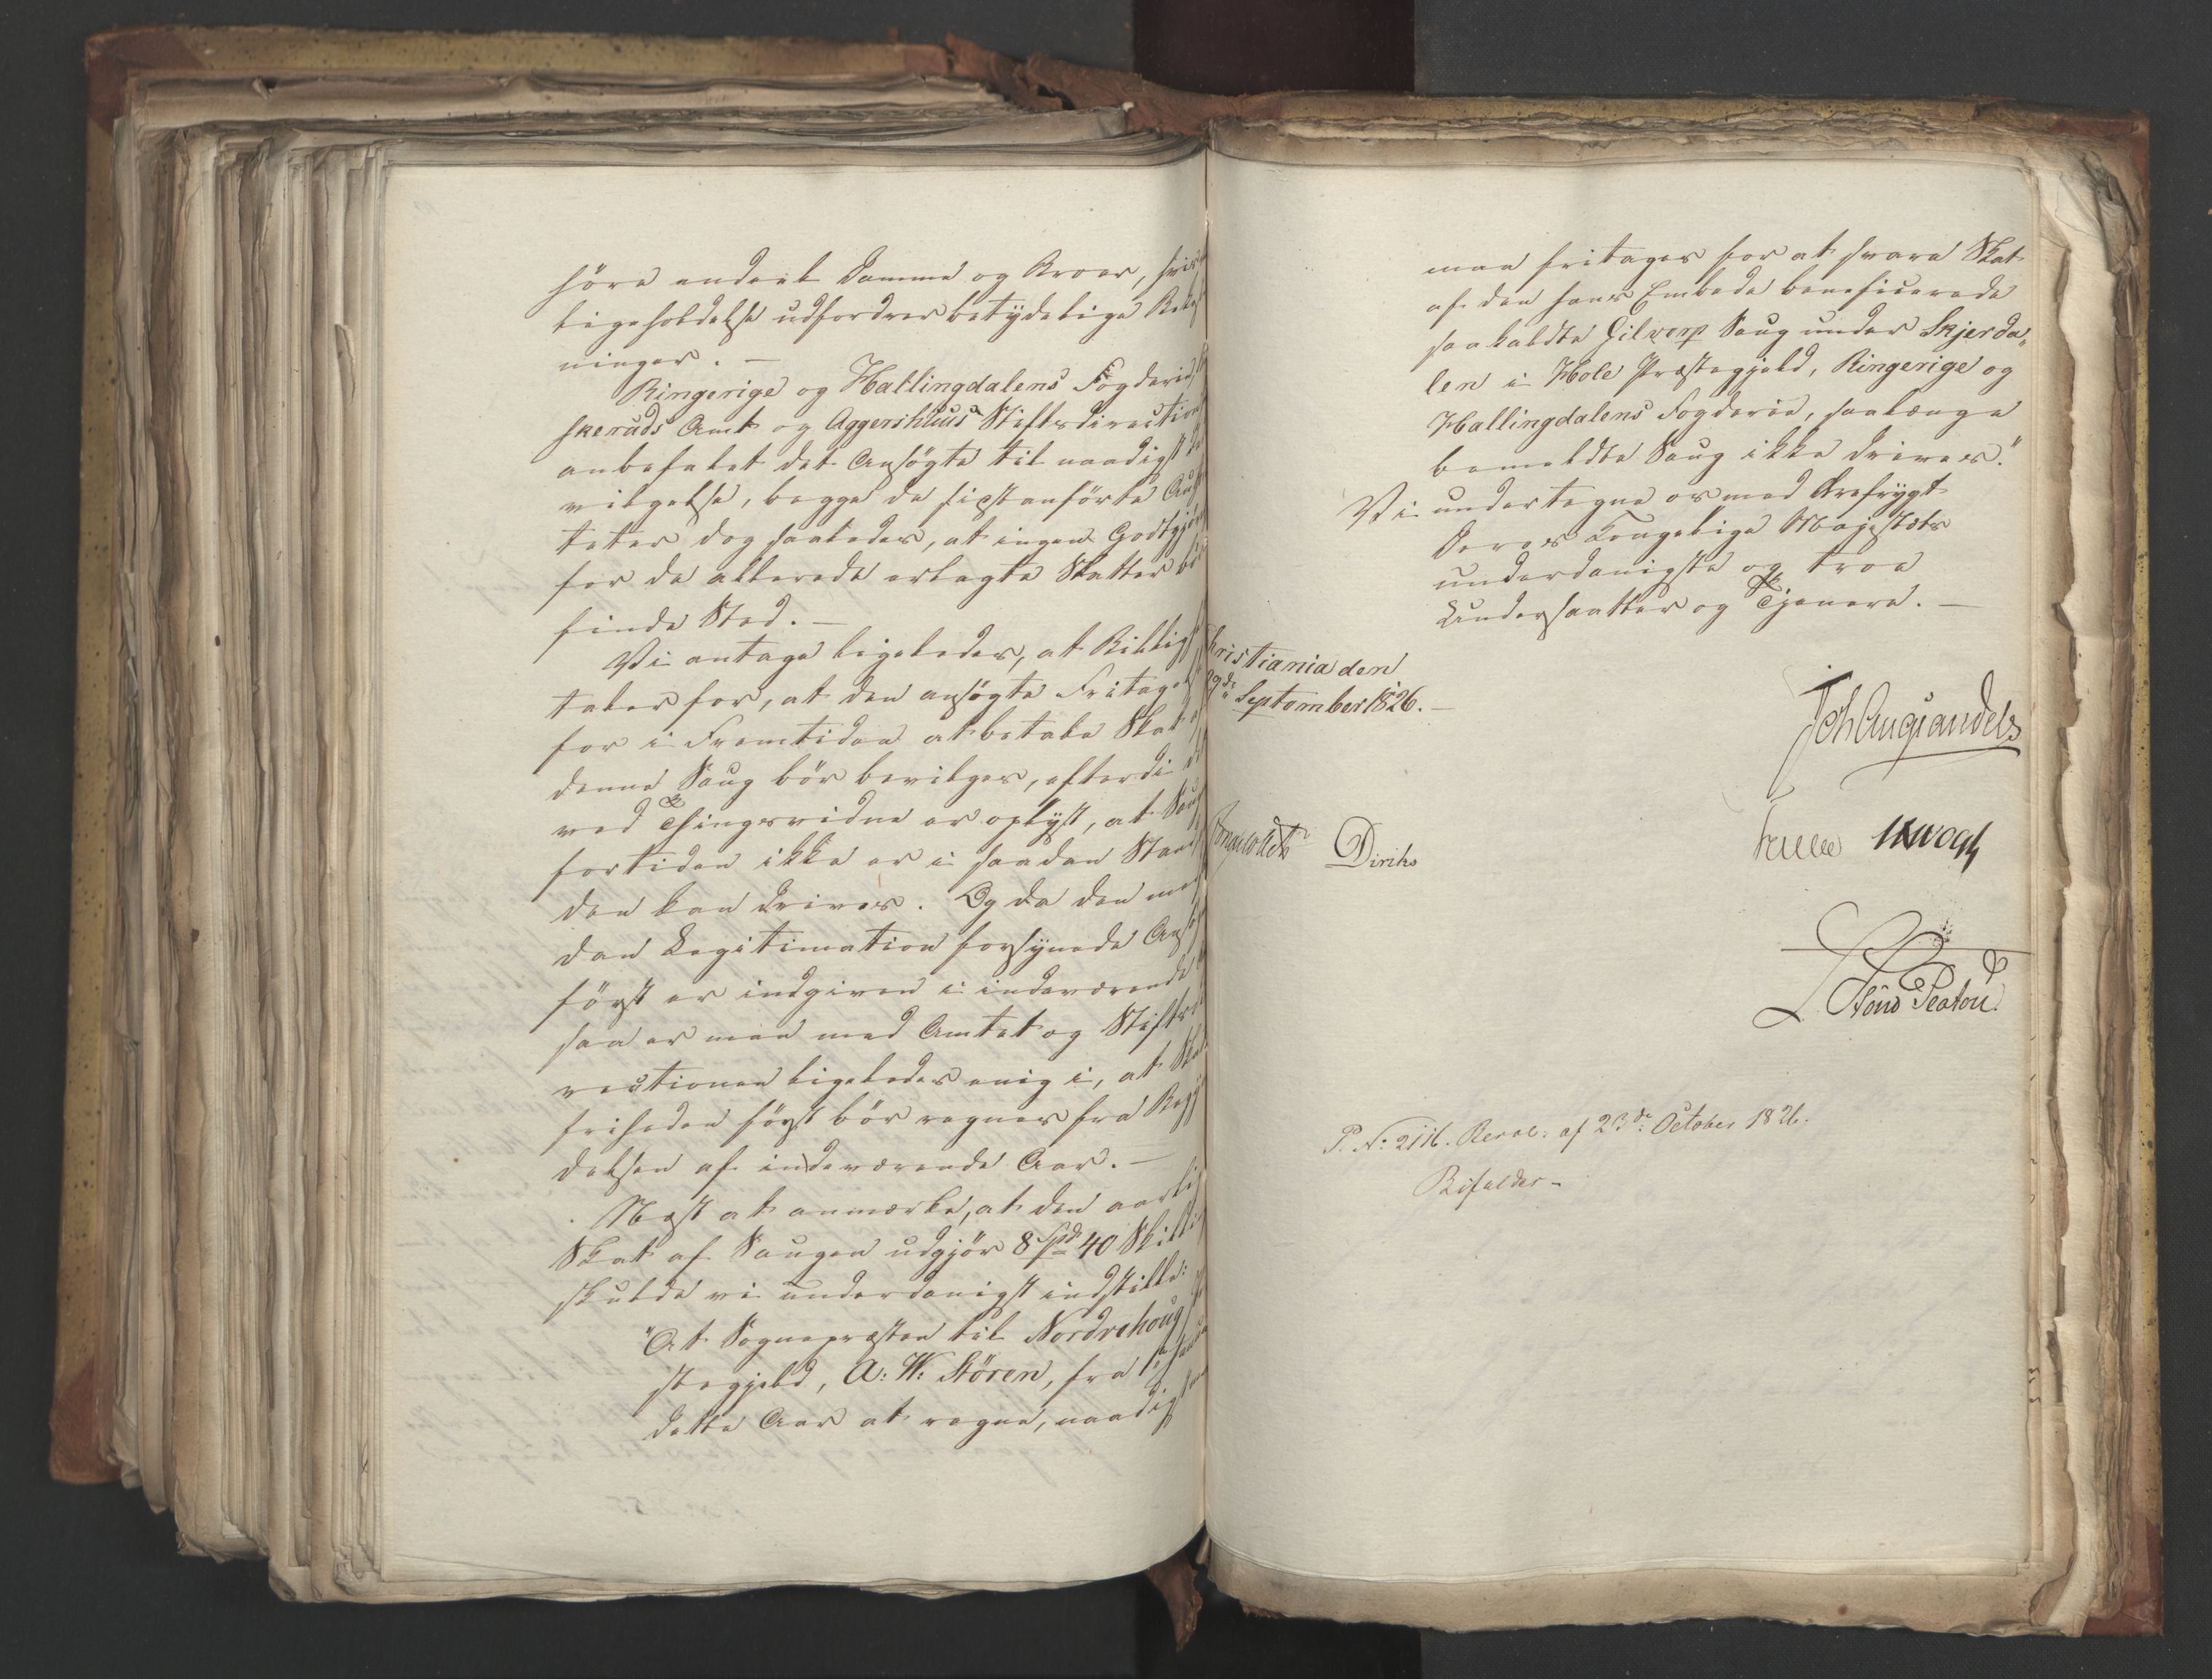 höre endeel Damme og Broer, hvis
ligeholdelse udfordrer betydelige Bekost
ninger. —
Ringerige og Hallingdalens Fogderie,
skeruds Amt og Aggershuus Stiftsdirection
anbefalet det Ansögte til naadigst Be
vilgelse, begge de sidstanförte
teter dog saaledes, at ingen Godtgjör
for de allerede erlagte Skatter bör
finde Sted. —
Vi antage ligeledes, at Billigh
taler for, at den ansögte Fritagelse
for i Fremtiden at betale Skat af
denne Saug bör bevilges, efterdi det
ved Thingsvidne er oplyst, at Saug
fortiden ikke er i saadan Stand
den kan drives. Og da den med
dan Legitimation forsynede Ansög
först er indgiven i indeværende
saa er man med Amtet og Stiftsdi
rectionen ligeledes enig i, at Skat
friheden först bör regnes fra Begyn
delsen af indeværende Aar. —
Næst at anmærke, at den aarlig
Skat af Saugen udgjör 8 Spd 40 Skill
skulde vi underdanigst indstille:
"At Sognepræsten til Nordrehoug
stegjeld, A: W: Stören, fra 1ste
dette Aar at regne, naadigst
maa fritages for at svare Skat
af den hans Embede beneficerede
saakaldte Skjerda„
len i Hole Præstegjeld, Ringerige og
Hallingdalens Fogderie, saalænge
bemeldte Saug ikke drives."
Vi undertegne os med Ærefrygt
Deres Kongelige Majestæts
underdanigste og troe
Undersaatter og Tjenere. —
Christiania den
29de September 1826. —
Diriks
P. N: 2116. Resol: af 23de October 1826.
Bifaldes —